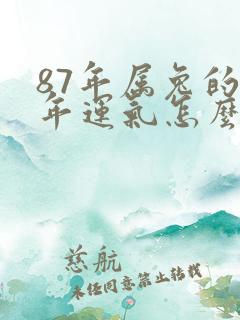 87年属兔的
年运气怎麽
慈航
未经同意禁止转载